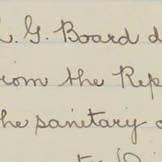 L. G. Board d
from the Rep
the sanitary o